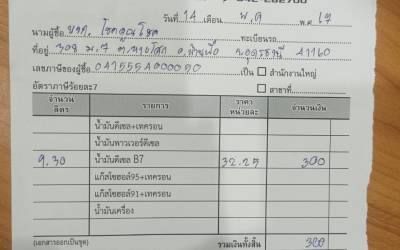 วันที่ 14 เดือน พ.ค พ.ศ. 67
นามผู้ซื้อ บจก. โชคคูณโชค ทะเบียนรถ
ที่อยู่ 308 ม.7 อ.บ้านผือ จ.อุดรธานี 41160
เลขภาษีของผู้ซื้อ เป็น ☐ สำนักงานใหญ่
อัตราภาษีร้อยละ7 ☐ สาขาที่
จำนวนลิตร รายการ ราคาหน่วยละ จำนวนเงิน
น้ำมันดีเซล+เทครอน
น้ำมันพาวเวอร์ดีเซล
9.30 น้ำมันดีเซล B7 32.25 300
แก๊สโซฮอล์95+เทครอน
แก๊สโซฮอล์91+เทครอน
น้ำมันเครื่อง
(เอกสารออกเป็นชุด) รวมเงินทั้งสิ้น 300